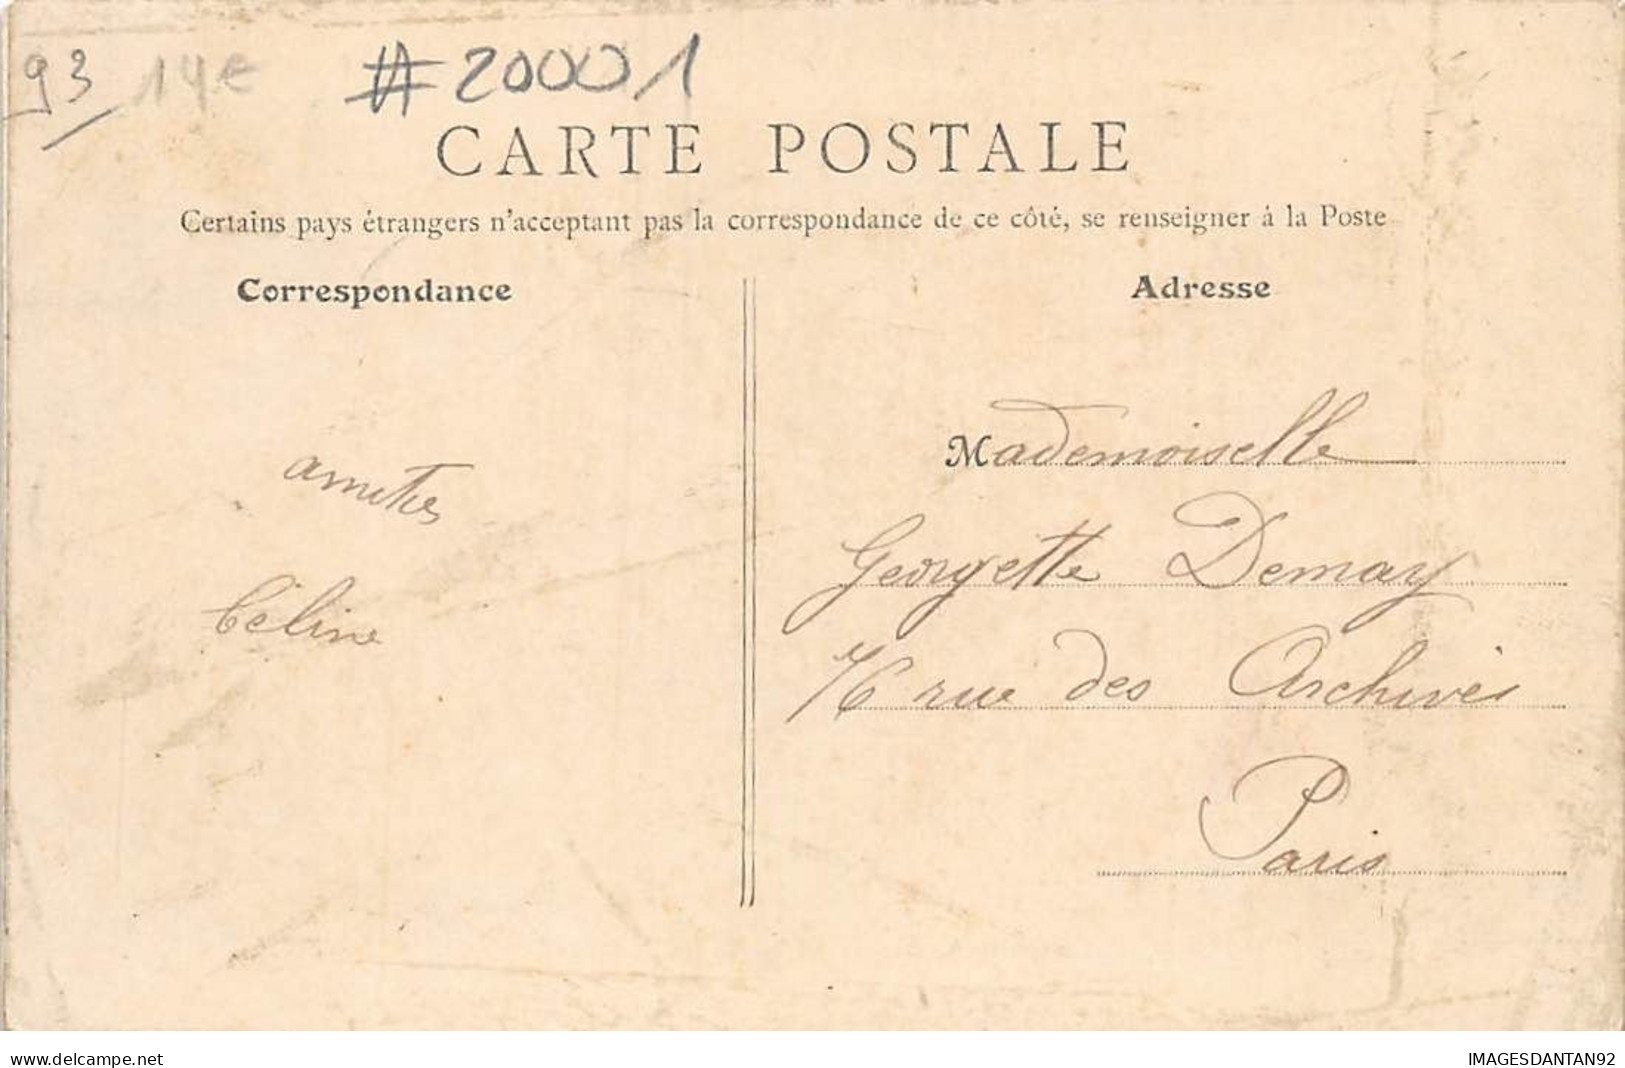 93 14€ #20001
CARTE POSTALE
Certains pays étrangers n'acceptant pas la correspondance de ce côté, se renseigner à la Poste
Correspondance
amitiés
Céline
Adresse
Mademoiselle
Georgette Demay
76 rue des Archives
Paris
www.delcampe.net
IMAGESDANTAN92